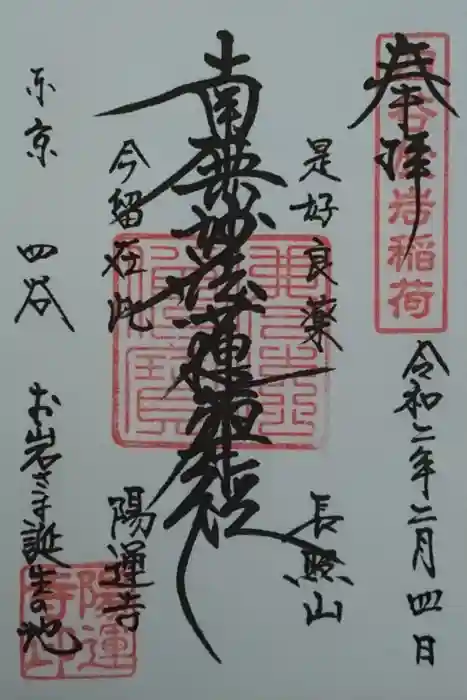 奉拝
四谷於岩稲荷
令和二年二月四日
是好良薬
長照山
南無妙法蓮華経
今留在此
陽運寺
東京 四谷 お岩さま誕生の地
陽運寺印